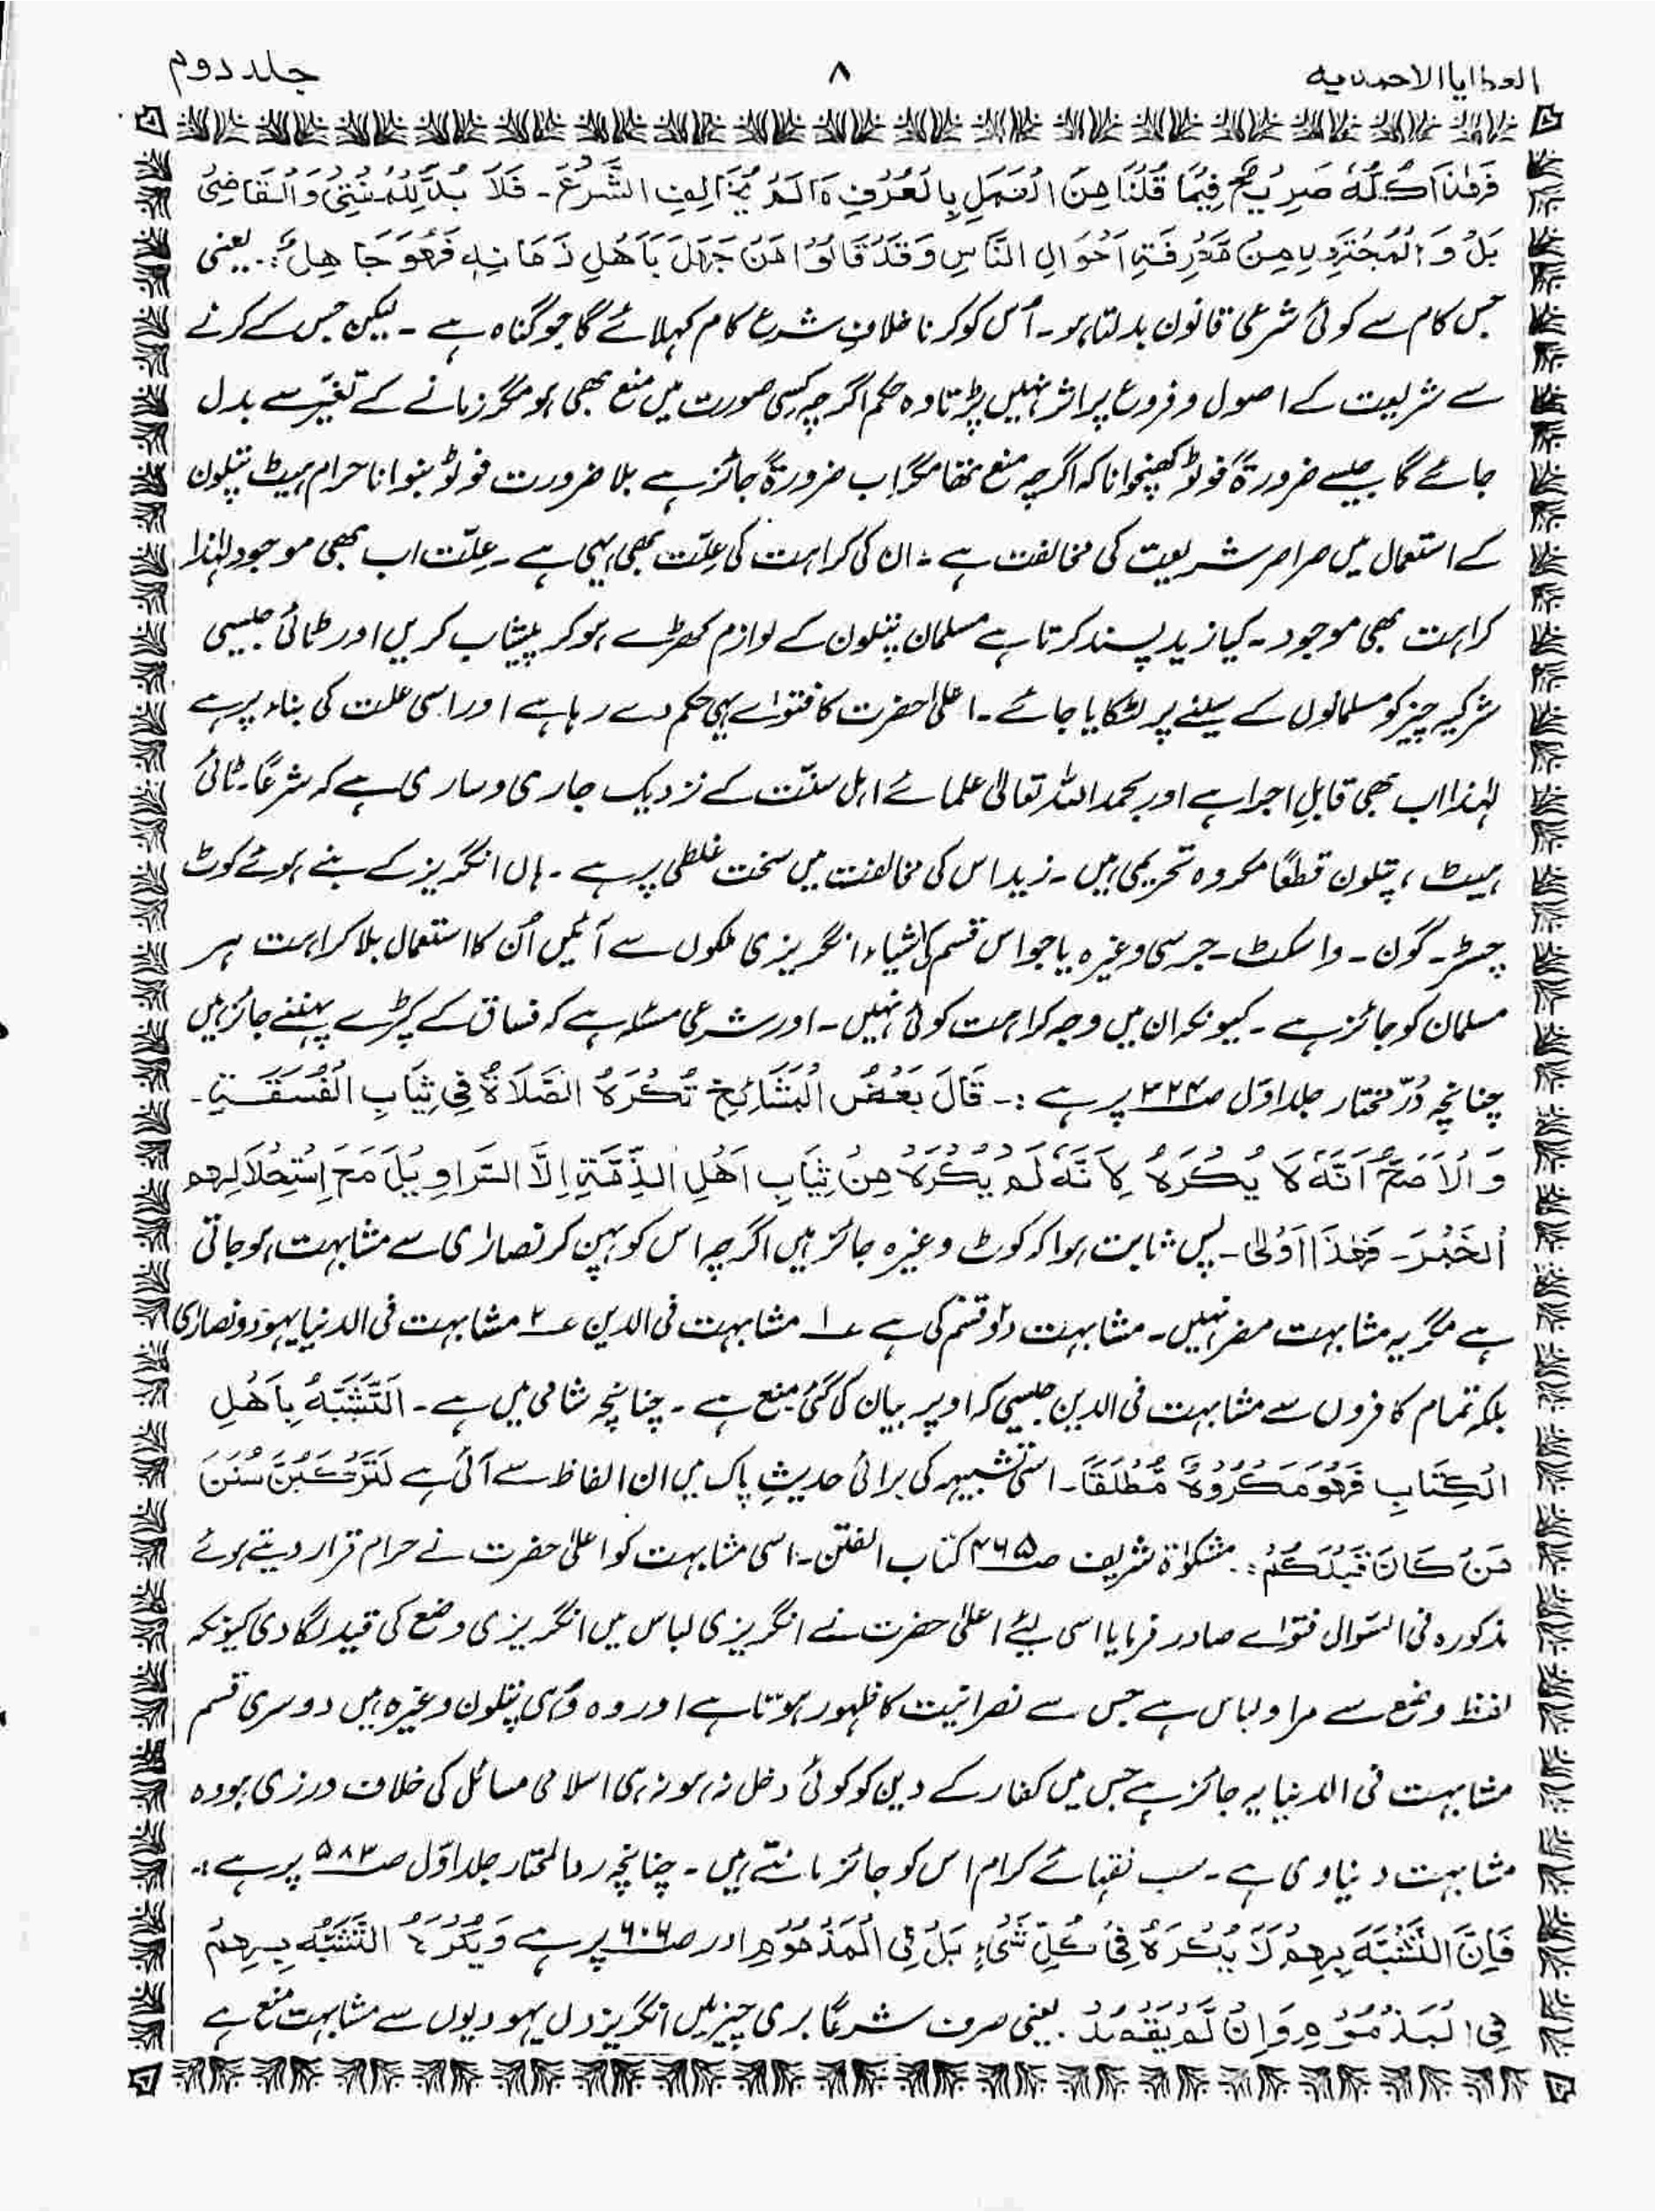 العطايا الاحمدیه ۸ جلد دوم
فَهٰذَا كُلُّهٗ صَرِيْحٌ فِيْمَا قُلْنَا مِنَ الْعَمَلِ بِالْعُرْفِ مَا لَمْ يُخَالِفِ الشَّرْعَ۔ فَلَا بُدَّ لِلْمُفْتِيْ وَالْقَاضِيْ
بَلْ وَالْمُجْتَهِدِ مِنْ مَعْرِفَةِ اَحْوَالِ النَّاسِ وَقَدْ قَالُوْا مَنْ جَهِلَ بِاَهْلِ زَمَانِهٖ فَهُوَ جَاهِلٌ:۔ یعنی
جس کام سے کوئی شرعی قانون بدلتا ہو۔ اُس کو کرنا خلافِ شرع کام کہلائے گا جو گناہ ہے ۔ لیکن جس کے کرنے
سے شریعت کے اصول و فروع پر اثر نہیں پڑتا وہ حکم اگرچہ کسی صورت میں منع بھی ہو مگر زمانے کے تغیّر سے بدل
جائے گا جیسے ضرورۃً فوٹو کھنچوانا کہ اگرچہ منع تھا مگر اب ضرورۃً جائز ہے بلا ضرورت فوٹو بنوانا حرام ہیٹ پتلون
کے استعمال میں صراصر شریعت کی مخالفت ہے ۔ ان کی کراہت کی عِلّت بھی یہی ہے ۔ عِلّت اب بھی موجود لہٰذا
کراہت بھی موجود ۔ کیا زید پسند کرتا ہے مسلمان پتلون کے لوازم کھڑے ہو کر پیشاب کریں اور ٹائی جیسی
شرکیہ چیز کو مسلمانوں کے سینے پر لٹکایا جائے ۔ اعلیٰ حضرت کا فتوٰے یہی حکم دے رہا ہے اور اسی علت کی بناء پر ہے
لہٰذا اب بھی قابلِ اجرا ہے اور بحمد اللہ تعالیٰ علمائے اہل سنّت کے نزدیک جاری و ساری ہے کہ شرعًا۔ ٹائی
ہیٹ ، پتلون قطعًا مکروہ تحریمی ہیں ۔ زید اس کی مخالفت میں سخت غلطی پر ہے ۔ ہاں انگریز کے بنے ہوئے کوٹ
چسٹر۔ گون ۔ واسکٹ ۔ جرسی وغیرہ یا جو اس قسم کی اشیاء انگریزی ملکوں سے آئیں اُن کا استعمال بلا کراہت ہر
مسلمان کو جائز ہے ۔ کیونکہ ان میں وجہ کراہت کوئی نہیں ۔ اور شرعی مسئلہ ہے کہ فساق کے کپڑے پہننے جائز ہیں
چنانچہ دُرّ مختار جلد اوّل صـ۳۲۴ پر ہے :۔ قَالَ بَعْضُ الْمَشَائِخِ تُكْرَهُ الصَّلَاةُ فِي ثِيَابِ الْفَسَقَةِ۔
وَالْاَصَحُّ اَنَّهٗ لَا يُكْرَهُ لِاَنَّهٗ لَمْ يُكْرَهْ مِنْ ثِيَابِ اَهْلِ الذِّمَّةِ اِلَّا السَّرَاوِيْلَ مَعَ اِسْتِحْلَالِهِمِ
اَلْخَمْرَ۔ فَهٰذَا اَوْلٰى۔ پس ثابت ہوا کہ کوٹ وغیرہ جائز ہیں اگرچہ اس کو پہن کر نصارٰی سے مشابہت ہو جاتی
ہے مگر یہ مشابہت مضر نہیں ۔ مشابہت دو قسم کی ہے عـ۱ مشابہت فی الدین عـ۲ مشابہت فی الدنیا یہود و نصارٰی
بلکہ تمام کافروں سے مشابہت فی الدین جیسی کہ اوپر بیان کی گئی منع ہے ۔ چنانچہ شامی میں ہے ۔ اَلتَّشَبُّهُ بِاَهْلِ
الْكِتَابِ فَهُوَ مَكْرُوْهٌ مُّطْلَقًا۔ اسی تشبیہہ کی برائی حدیثِ پاک میں ان الفاظ سے آئی ہے لَتَرْكَبُنَّ سُنَنَ
مَنْ كَانَ قَبْلَكُمْ:۔ مشکوٰۃ شریف صـ۴۶۵ کتاب الفتن۔ اسی مشابہت کو اعلیٰ حضرت نے حرام قرار دیتے ہوئے
مذکورہ فی السّوال فتوٰے صادر فرمایا اسی لیئے اعلیٰ حضرت نے انگریزی لباس میں انگریزی وضع کی قید لگا دی کیونکہ
لفظ وضع سے مراد لباس ہے جس سے نصرانیت کا ظہور ہوتا ہے اور وہ وُہی پتلون وغیرہ ہیں دوسری قسم
مشابہت فی الدنیا یہ جائز ہے جس میں کفار کے دین کو کوئی دخل نہ ہو نہ ہی اسلامی مسائل کی خلاف ورزی ہو وہ
مشابہت دنیاوی ہے ۔ سب فقہائے کرام اس کو جائز مانتے ہیں ۔ چنانچہ رد المختار جلد اوّل صـ۵۸۳ پر ہے :۔
فَاِنَّ التَّشَبُّهَ بِهِمْ لَا يُكْرَهُ فِيْ كُلِّ شَيْءٍ بَلْ فِي الْمَذْمُوْمِ اور صـ۶۰۶ پر ہے وَيُكْرَهُ التَّشَبُّهُ بِهِمْ
فِي الْمَذْمُوْمِ وَاِنْ لَّمْ يَقْصُدْ۔ یعنی صرف شرعًا بری چیز میں انگریزوں یہودیوں سے مشابہت منع ہے